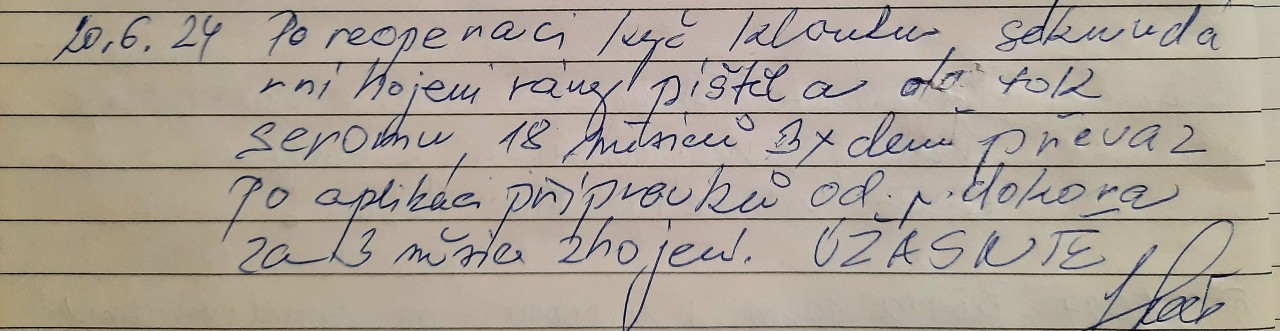 20.6.24 Po reoperaci kyč kloubu, sekundá
rní hojení rány píštěl a odtok
seromu, 18 měsíců 3x denně převaz
Po aplikaci přípravků od p. doktora
za 3 měsíce zhojení. ÚŽASNTĚ